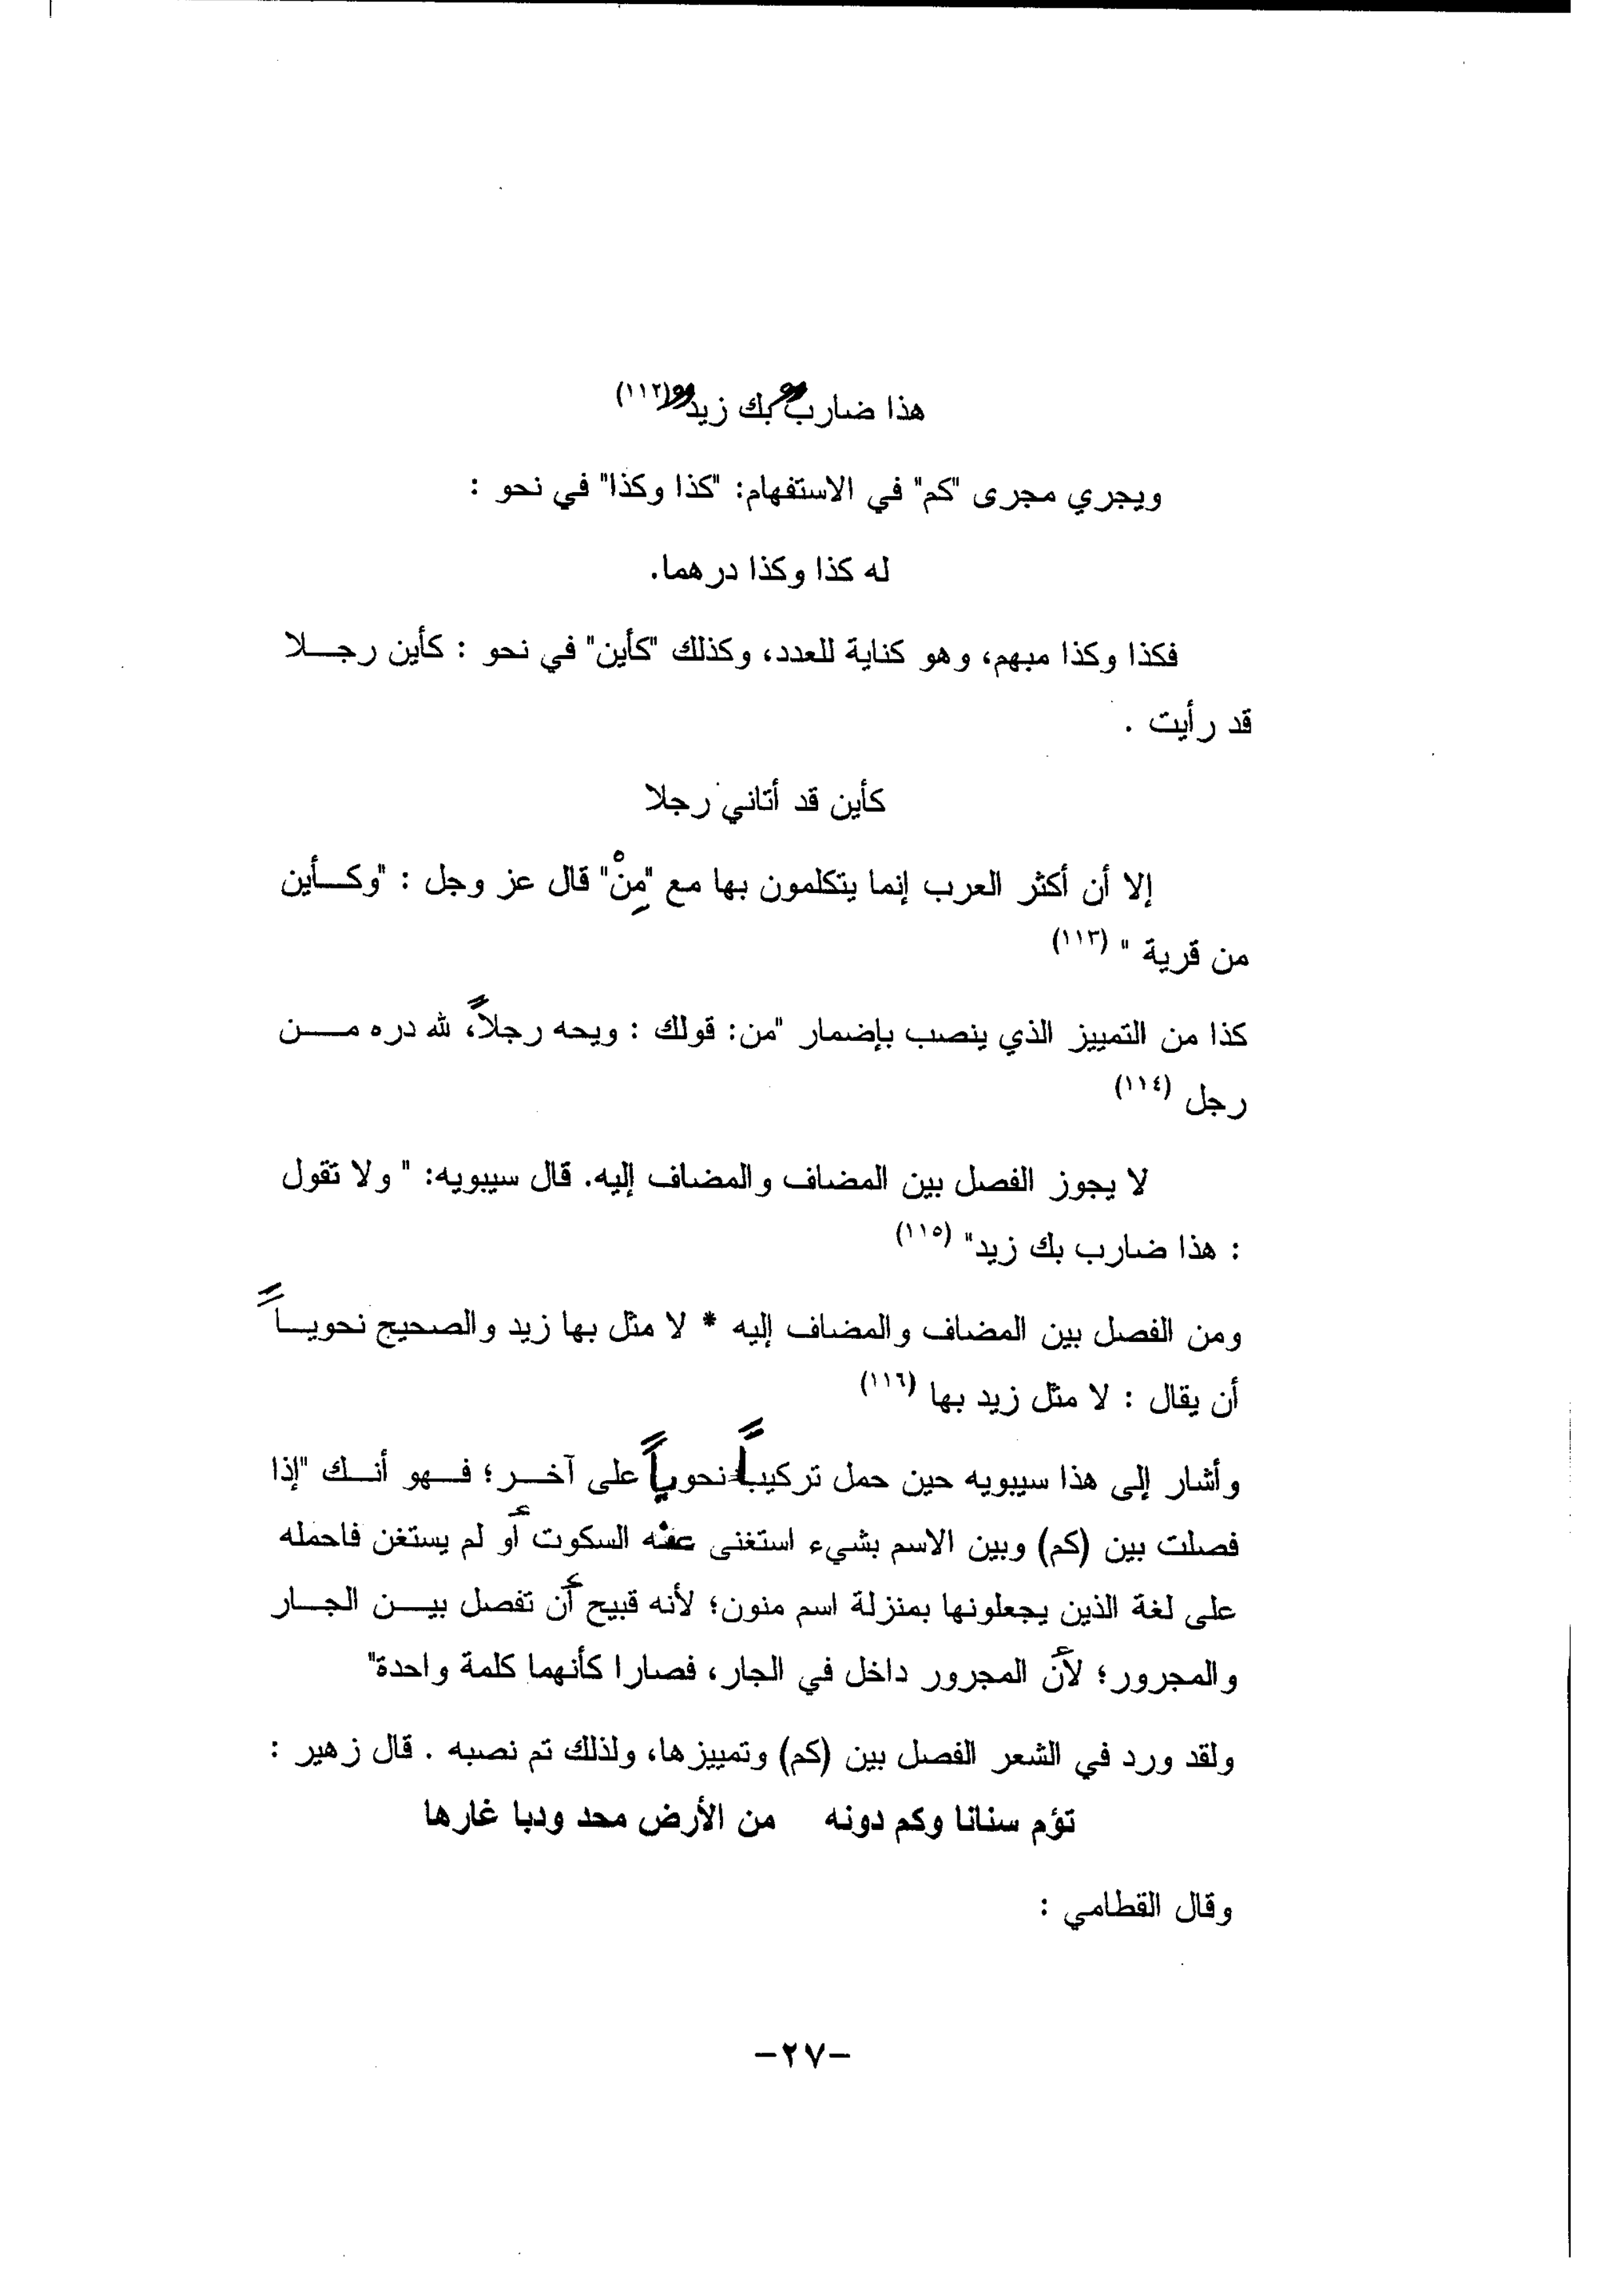 هذا ضاربٌ بك زيدٌ (١١٢)
ويجري مجرى "كم" في الاستفهام: "كذا وكذا" في نحو :
له كذا وكذا درهما.
فكذا وكذا مبهم، وهو كناية للعدد، وكذلك "كأين" في نحو : كأين رجلا
قد رأيت .
كأين قد أتاني رجلا
إلا أن أكثر العرب إنما يتكلمون بها مع "مِنْ" قال عز وجل : "وكأين
من قرية " (١١٣)
كذا من التمييز الذي ينصب بإضمار "من: قولك : ويحه رجلاً، لله دره من
رجل (١١٤)
لا يجوز الفصل بين المضاف والمضاف إليه. قال سيبويه: " ولا تقول
: هذا ضارب بك زيد" (١١٥)
ومن الفصل بين المضاف والمضاف إليه * لا مثل بها زيد والصحيح نحوياً
أن يقال : لا مثل زيد بها (١١٦)
وأشار إلى هذا سيبويه حين حمل تركيباً نحوياً على آخر؛ فهو أنك "إذا
فصلت بين (كم) وبين الاسم بشيء استغنى عنه السكوت أو لم يستغن فاحمله
على لغة الذين يجعلونها بمنزلة اسم منون؛ لأنه قبيح أن تفصل بين الجار
والمجرور؛ لأن المجرور داخل في الجار، فصارا كأنهما كلمة واحدة"
ولقد ورد في الشعر الفصل بين (كم) وتمييزها، ولذلك تم نصبه . قال زهير :
تؤم سنانا وكم دونه من الأرض محد ودبا غارها
وقال القطامي :
-٢٧-